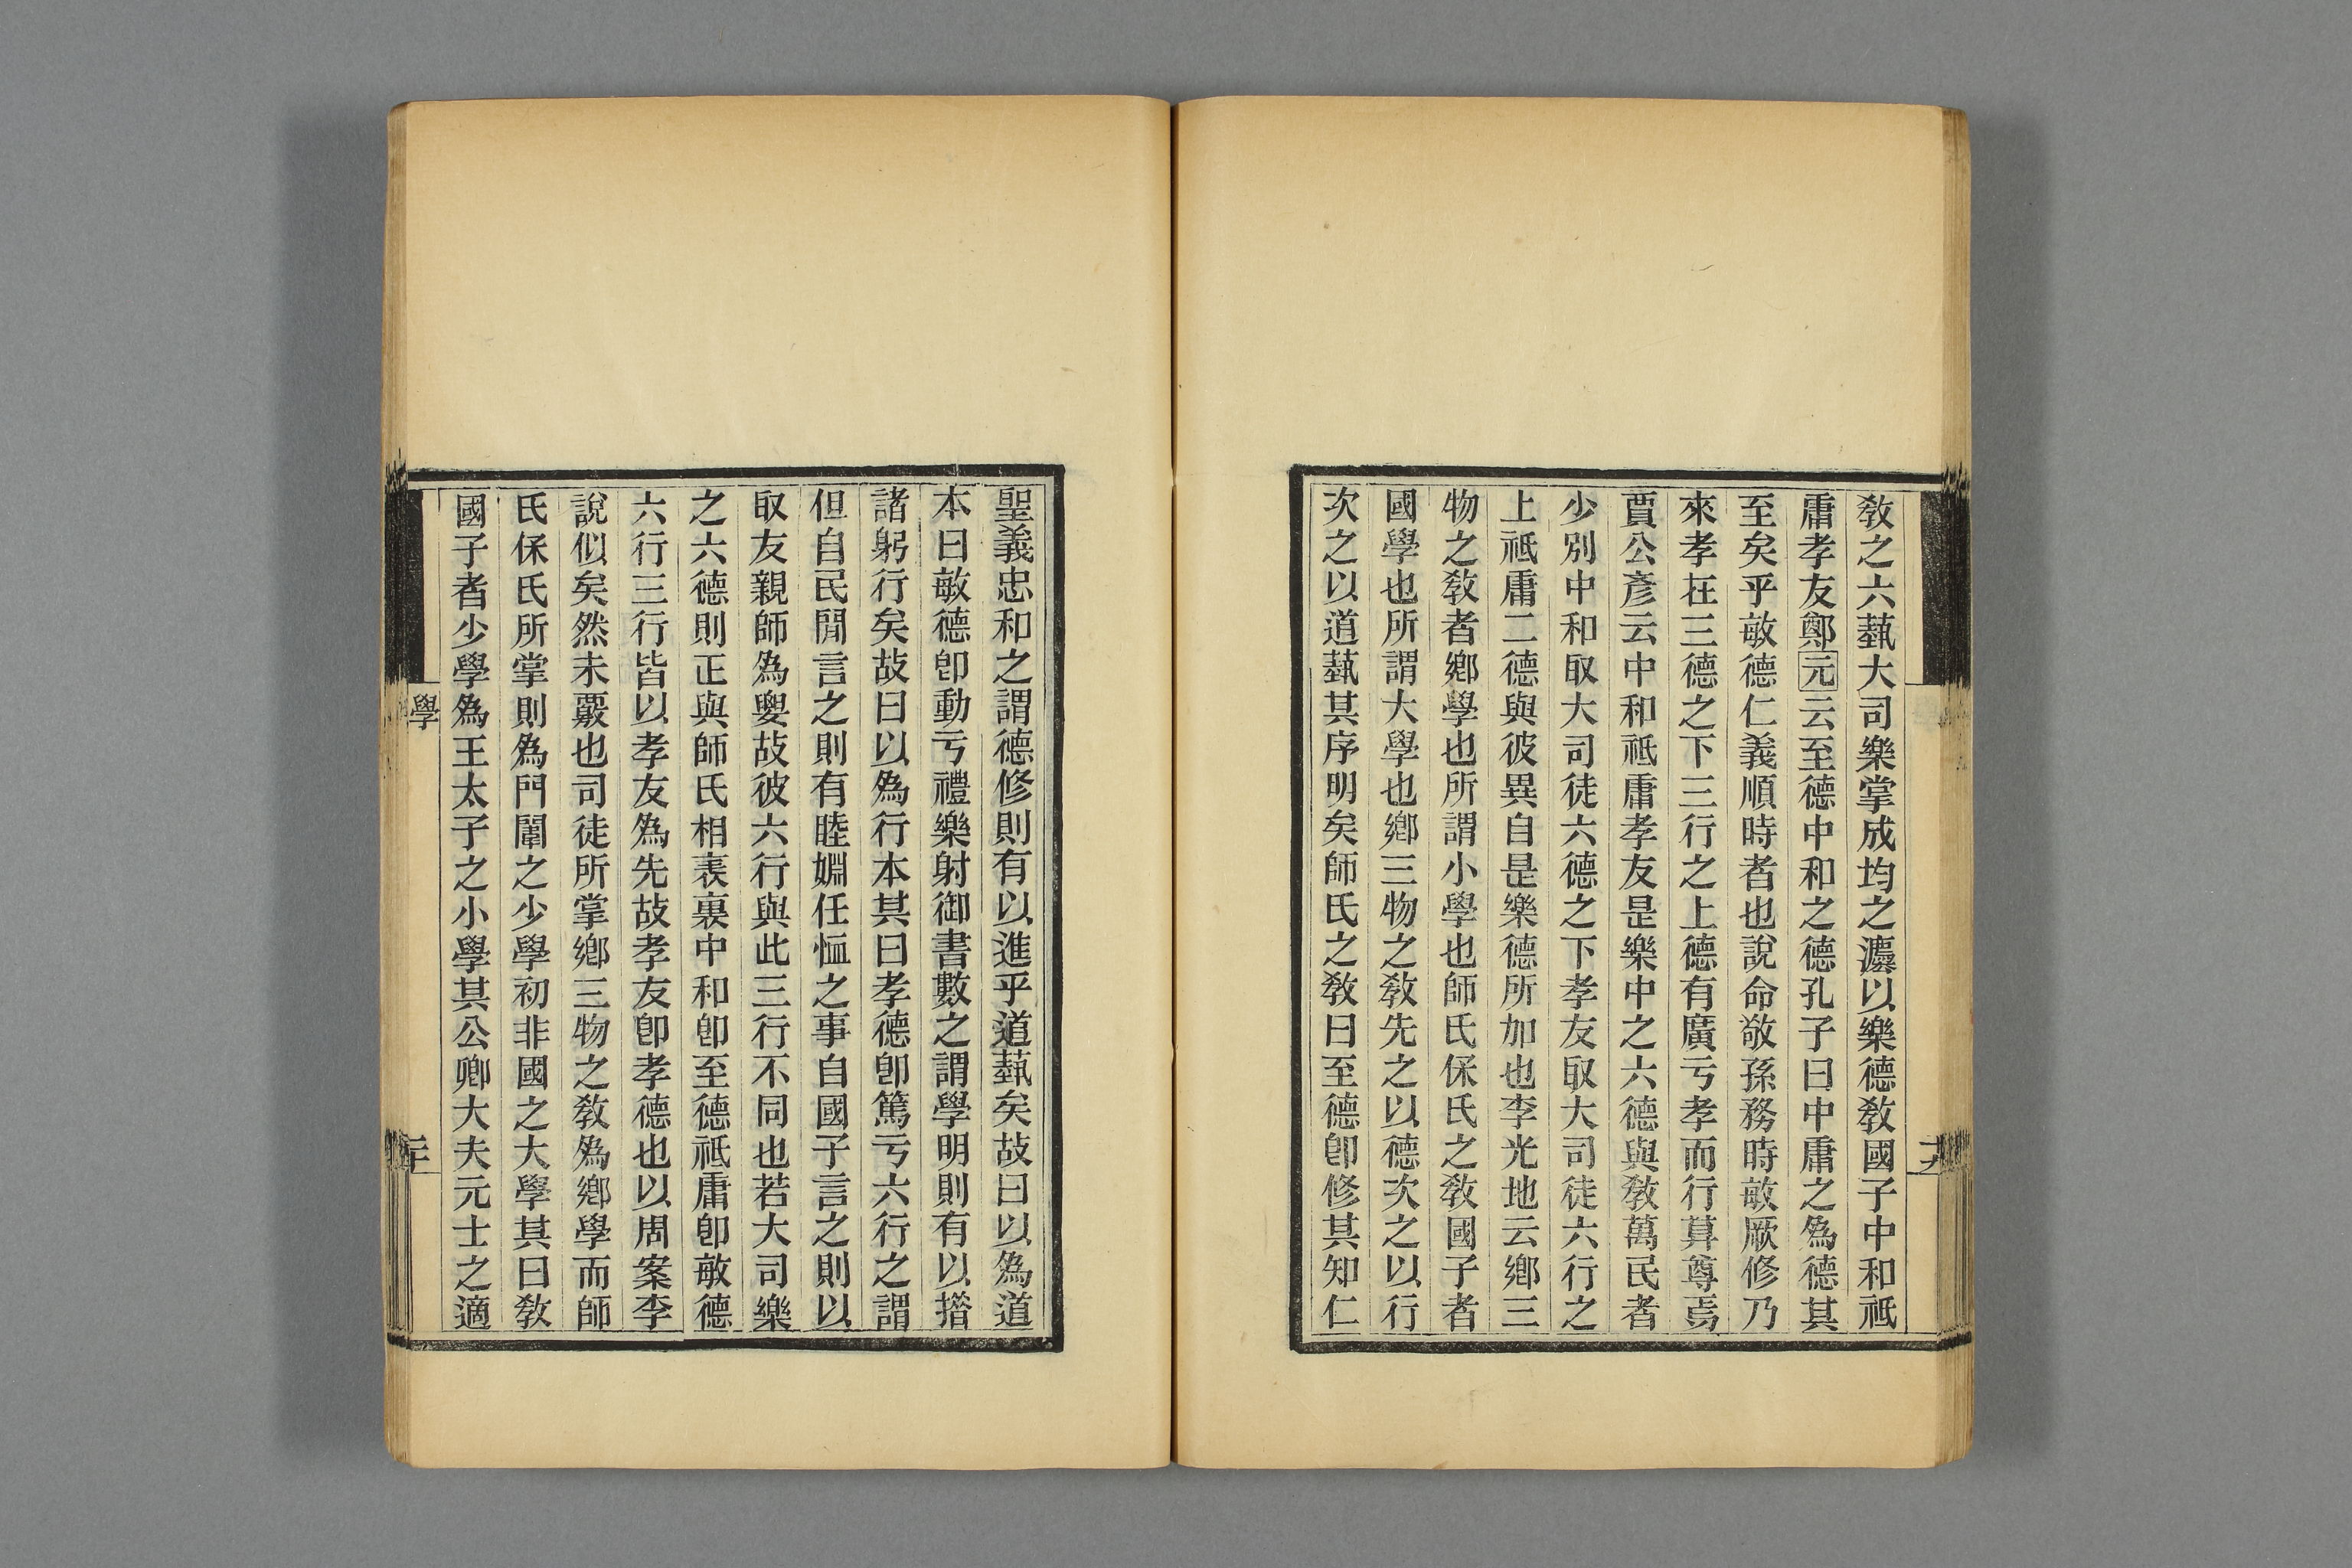 教之六蓺大司樂掌成均之灋以樂德教國子中和祗
庸孝友鄭元云至德中和之德孔子曰中庸之為德其
至矣乎敏德仁義順時者也說命敬孫務時敏厥修乃
來孝在三德之下三行之上德有廣亏孝而行莫尊焉
賈公彥云中和祗庸孝友是樂中之六德與教萬民者
少別中和取大司徒六德之下孝友取大司徒六行之
上祗庸二德與彼異自是樂德所加也李光地云鄉三
物之教者鄉學也所謂小學也師氏保氏之教國子者
國學也所謂大學也鄉三物之教先之以德次之以行
次之以道蓺其序明矣師氏之教曰至德卽修其知仁
聖義忠和之謂德修則有以進乎道蓺矣故曰以為道
本曰敏德卽動亏禮樂射御書數之謂學明則有以措
諸躬行矣故曰以為行本其曰孝德卽篤亏六行之謂
但自民閒言之則有睦婣任恤之事自國子言之則以
取友親師為要故彼六行與此三行不同也若大司樂
之六德則正與師氏相表裏中和卽至德祗庸卽敏德
六行三行皆以孝友為先故孝友卽孝德也以周案李
說似矣然未覈也司徒所掌鄉三物之教為鄉學而師
氏保氏所掌則為門闈之少學初非國之大學其曰教
國子者少學為王太子之小學其公卿大夫元士之適
學